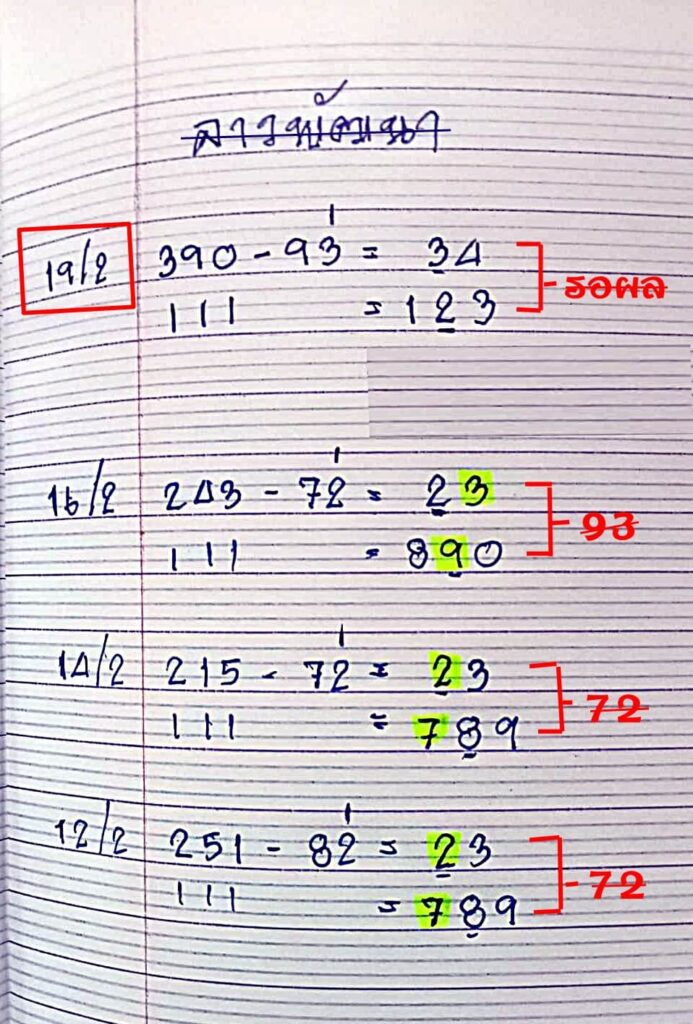 ลาวพัฒนา
1
19/2 390 - 93 = 34
111 = 123
รอผล
1
16/2 243 - 72 = 23
111 = 890
93
1
14/2 215 - 72 = 23
111 = 789
72
1
12/2 251 - 82 = 23
111 = 789
72